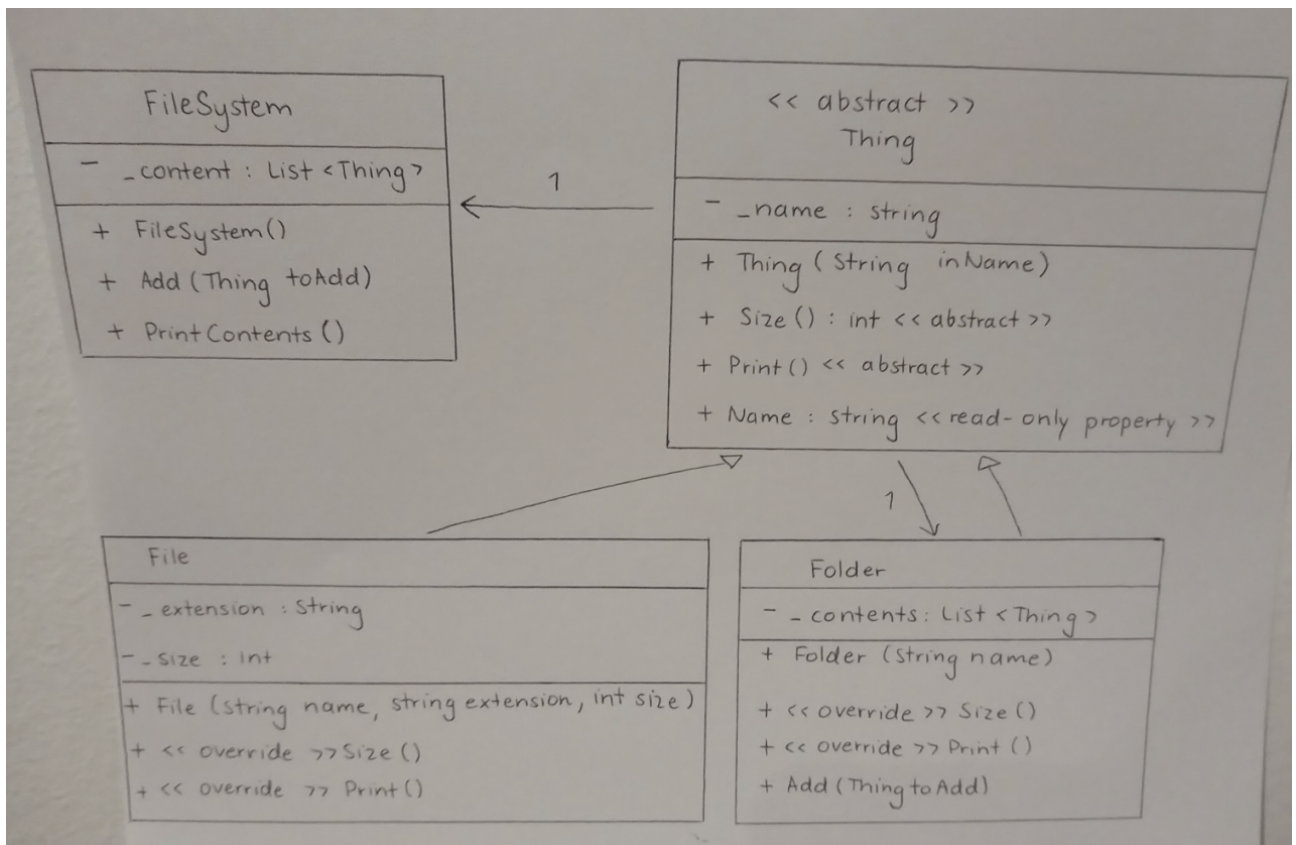 FileSystem
- _content : List <Thing>
+ FileSystem()
+ Add (Thing toAdd)
+ PrintContents ()
1
<< abstract >>
Thing
- _name : string
+ Thing ( String inName)
+ Size () : int << abstract >>
+ Print () << abstract >>
+ Name : string << read-only property >>
1
File
- _extension : String
- _size : int
+ File (string name, string extension, int size)
+ << override >> Size ()
+ << override >> Print ()
Folder
- _contents: List <Thing>
+ Folder (String name)
+ << override >> Size ()
+ << override >> Print ()
+ Add (Thing toAdd)